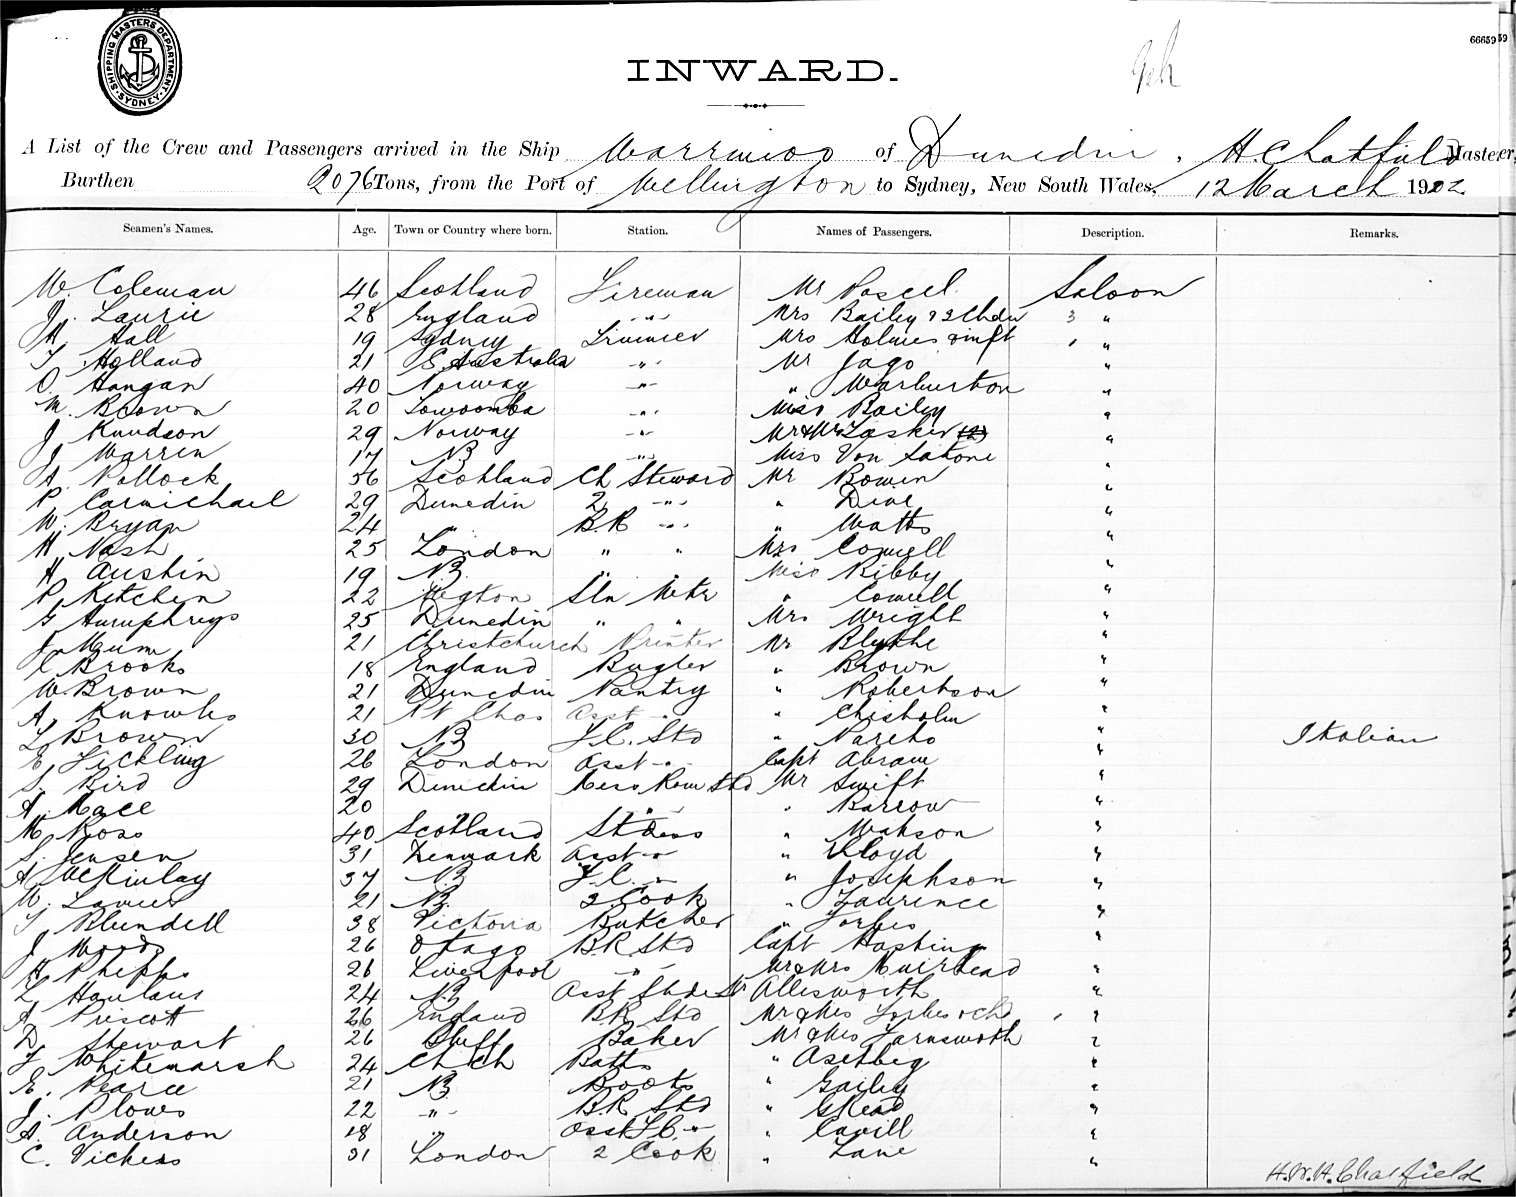 SHIPPING MASTERS DEPARTMENT SYDNEY
66659
INWARD.
A List of the Crew and Passengers arrived in the Ship Warrimoo of Dunedin. H. Chatfield Master,
Burthen 2076 Tons, from the Port of Wellington to Sydney, New South Wales, 12 March 1902
Seamen's Names. Age. Town or Country where born. Station. Names of Passengers. Description. Remarks.
W. Coleman 46 Scotland Fireman Mr Saloon
J. Laurie 28 England " " Mrs Bailey & 2 Chdn 3 "
H Hall 19 Sydney Trimmer Mrs Holmes & inft "
T Holland 21 S. Australia " " Mr Jago "
O. Hangan 40 Norway " " " Warburton "
M. Brown 20 Towoomba " " Miss Bailey "
J Knudson 29 Norway " " Mr & Mrs Lasker "
J Warren 17 NZ " " Miss Von "
A. Pollock 56 Scotland Ch Steward Mr Bowen "
P Carmichael 29 Dunedin 2 " " Dive "
W. Bryan 24 " B.R. " " Watts "
H Nash 25 London " " Mrs Cowell "
H Austin 19 NZ " " Miss Bibby "
P Ketchen 22 Wegton Sln Wtr " Cowell "
G Humphreys 25 Dunedin " " Mrs Wright "
J Munn 21 Christchurch Printer Mr Blythe "
C Brooks 18 England Bugler " Brown "
W. Brown 21 Dunedin Pantry " Robertson "
A. Knowles 21 Pt Chas Asst " " Chisholm "
L Brown 30 NZ F.C. Std " Pareto " Italian
E, Fickling 26 London Asst " Capt Abram "
S. Bird 29 Dunedin Mess Room Std Mr Swift "
A. Mace 20 " " Barrow "
M. Ross 40 Scotland Stdess " Watson "
S. Jensen 31 Denmark Asst " " Lloyd "
A McKinlay 37 NZ F.C. " " Josephson "
W. 21 NZ 3 Cook " Laurence "
T Blundell 38 Victoria Butcher " Forbes "
J Woods 26 Otago B.R. Std Capt Hastings "
H Phipps 26 Liverpool " " Mr & Mrs Muirhead "
L 24 NZ Asst Stdess Mr Allesworth "
A Priscott 26 England B.R. Std Mr & Mrs Forbes & Chd "
D Stewart 26 Bluff Baker Mr & Mrs Farnsworth 2
F Whitemarsh 24 Ch Ch Baths " "
E. Pearce 21 NZ Boots " Gailey "
J. Plows 22 " " B.R. Std " G Read "
A. Anderson 18 " Asst F.C. " " Cavill "
C. Vickess 31 London 2 Cook " Lane "
H. W. H. Chatfield